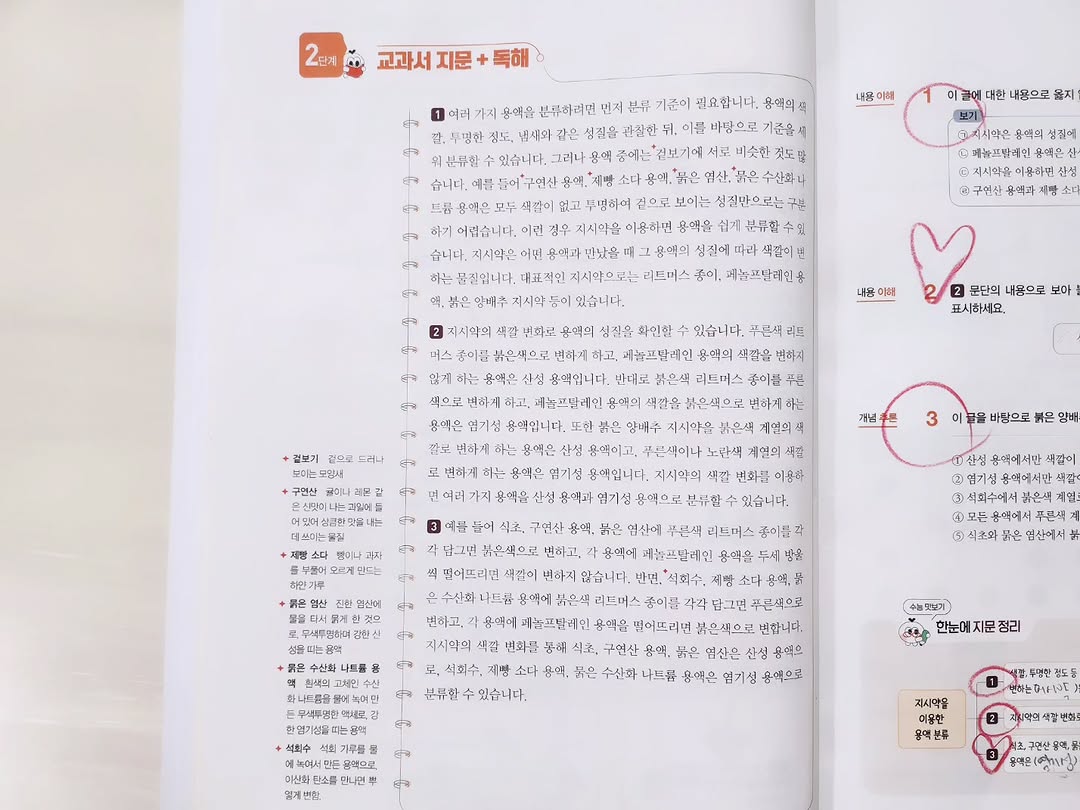 2단계 교과서 지문 + 독해
1 여러 가지 용액을 분류하려면 먼저 분류 기준이 필요합니다. 용액의 색
깔, 투명한 정도, 냄새와 같은 성질을 관찰한 뒤, 이를 바탕으로 기준을 세
워 분류할 수 있습니다. 그러나 용액 중에는 겉보기에 서로 비슷한 것도 많
습니다. 예를 들어 구연산 용액, 제빵 소다 용액, 묽은 염산, 묽은 수산화 나
트륨 용액은 모두 색깔이 없고 투명하여 겉으로 보이는 성질만으로는 구분
하기 어렵습니다. 이런 경우 지시약을 이용하면 용액을 쉽게 분류할 수 있
습니다. 지시약은 어떤 용액과 만났을 때 그 용액의 성질에 따라 색깔이 변
하는 물질입니다. 대표적인 지시약으로는 리트머스 종이, 페놀프탈레인 용
액, 붉은 양배추 지시약 등이 있습니다.
2 지시약의 색깔 변화로 용액의 성질을 확인할 수 있습니다. 푸른색 리트
머스 종이를 붉은색으로 변하게 하고, 페놀프탈레인 용액의 색깔을 변하지
않게 하는 용액은 산성 용액입니다. 반대로 붉은색 리트머스 종이를 푸른
색으로 변하게 하고, 페놀프탈레인 용액의 색깔을 붉은색으로 변하게 하는
용액은 염기성 용액입니다. 또한 붉은 양배추 지시약을 붉은색 계열의 색
깔로 변하게 하는 용액은 산성 용액이고, 푸른색이나 노란색 계열의 색깔
로 변하게 하는 용액은 염기성 용액입니다. 지시약의 색깔 변화를 이용하
면 여러 가지 용액을 산성 용액과 염기성 용액으로 분류할 수 있습니다.
3 예를 들어 식초, 구연산 용액, 묽은 염산에 푸른색 리트머스 종이를 각
각 담그면 붉은색으로 변하고, 각 용액에 페놀프탈레인 용액을 두세 방울
씩 떨어뜨리면 색깔이 변하지 않습니다. 반면, 석회수, 제빵 소다 용액, 묽
은 수산화 나트륨 용액에 붉은색 리트머스 종이를 각각 담그면 푸른색으로
변하고, 각 용액에 페놀프탈레인 용액을 떨어뜨리면 붉은색으로 변합니다.
지시약의 색깔 변화를 통해 식초, 구연산 용액, 묽은 염산은 산성 용액으
로, 석회수, 제빵 소다 용액, 묽은 수산화 나트륨 용액은 염기성 용액으로
분류할 수 있습니다.
겉보기 겉으로 드러나
보이는 모양새
구연산 귤이나 레몬 같
은 신맛이 나는 과일에 들
어 있어 상큼한 맛을 내는
데 쓰이는 물질
제빵 소다 빵이나 과자
를 부풀어 오르게 만드는
하얀 가루
묽은 염산 진한 염산에
물을 타서 묽게 한 것으
로, 무색투명하며 강한 산
성을 띠는 용액
묽은 수산화 나트륨 용
액 흰색의 고체인 수산
화 나트륨을 물에 녹여 만
든 무색투명한 액체로, 강
한 염기성을 띠는 용액
석회수 석회 가루를 물
에 녹여서 만든 용액으로,
이산화 탄소를 만나면 뿌
옇게 변함.
내용 이해 1 이 글에 대한 내용으로 옳지
보기
㉠ 지시약은 용액의 성질에
㉡ 페놀프탈레인 용액은 산성
㉢ 지시약을 이용하면 산성
㉣ 구연산 용액과 제빵 소다
내용 이해 2 2 문단의 내용으로 보아
표시하세요.
개념 추론 3 이 글을 바탕으로 붉은 양배추
① 산성 용액에서만 색깔이
② 염기성 용액에서만 색깔이
③ 석회수에서 붉은색 계열로
④ 모든 용액에서 푸른색 계
⑤ 식초와 묽은 염산에서
수능 맛보기
한눈에 지문 정리
지시약을
이용한
용액 분류
1 색깔, 투명한 정도 등
변하는
2 지시약의 색깔 변화로
3 식초, 구연산 용액, 묽
용액은 (염기성)